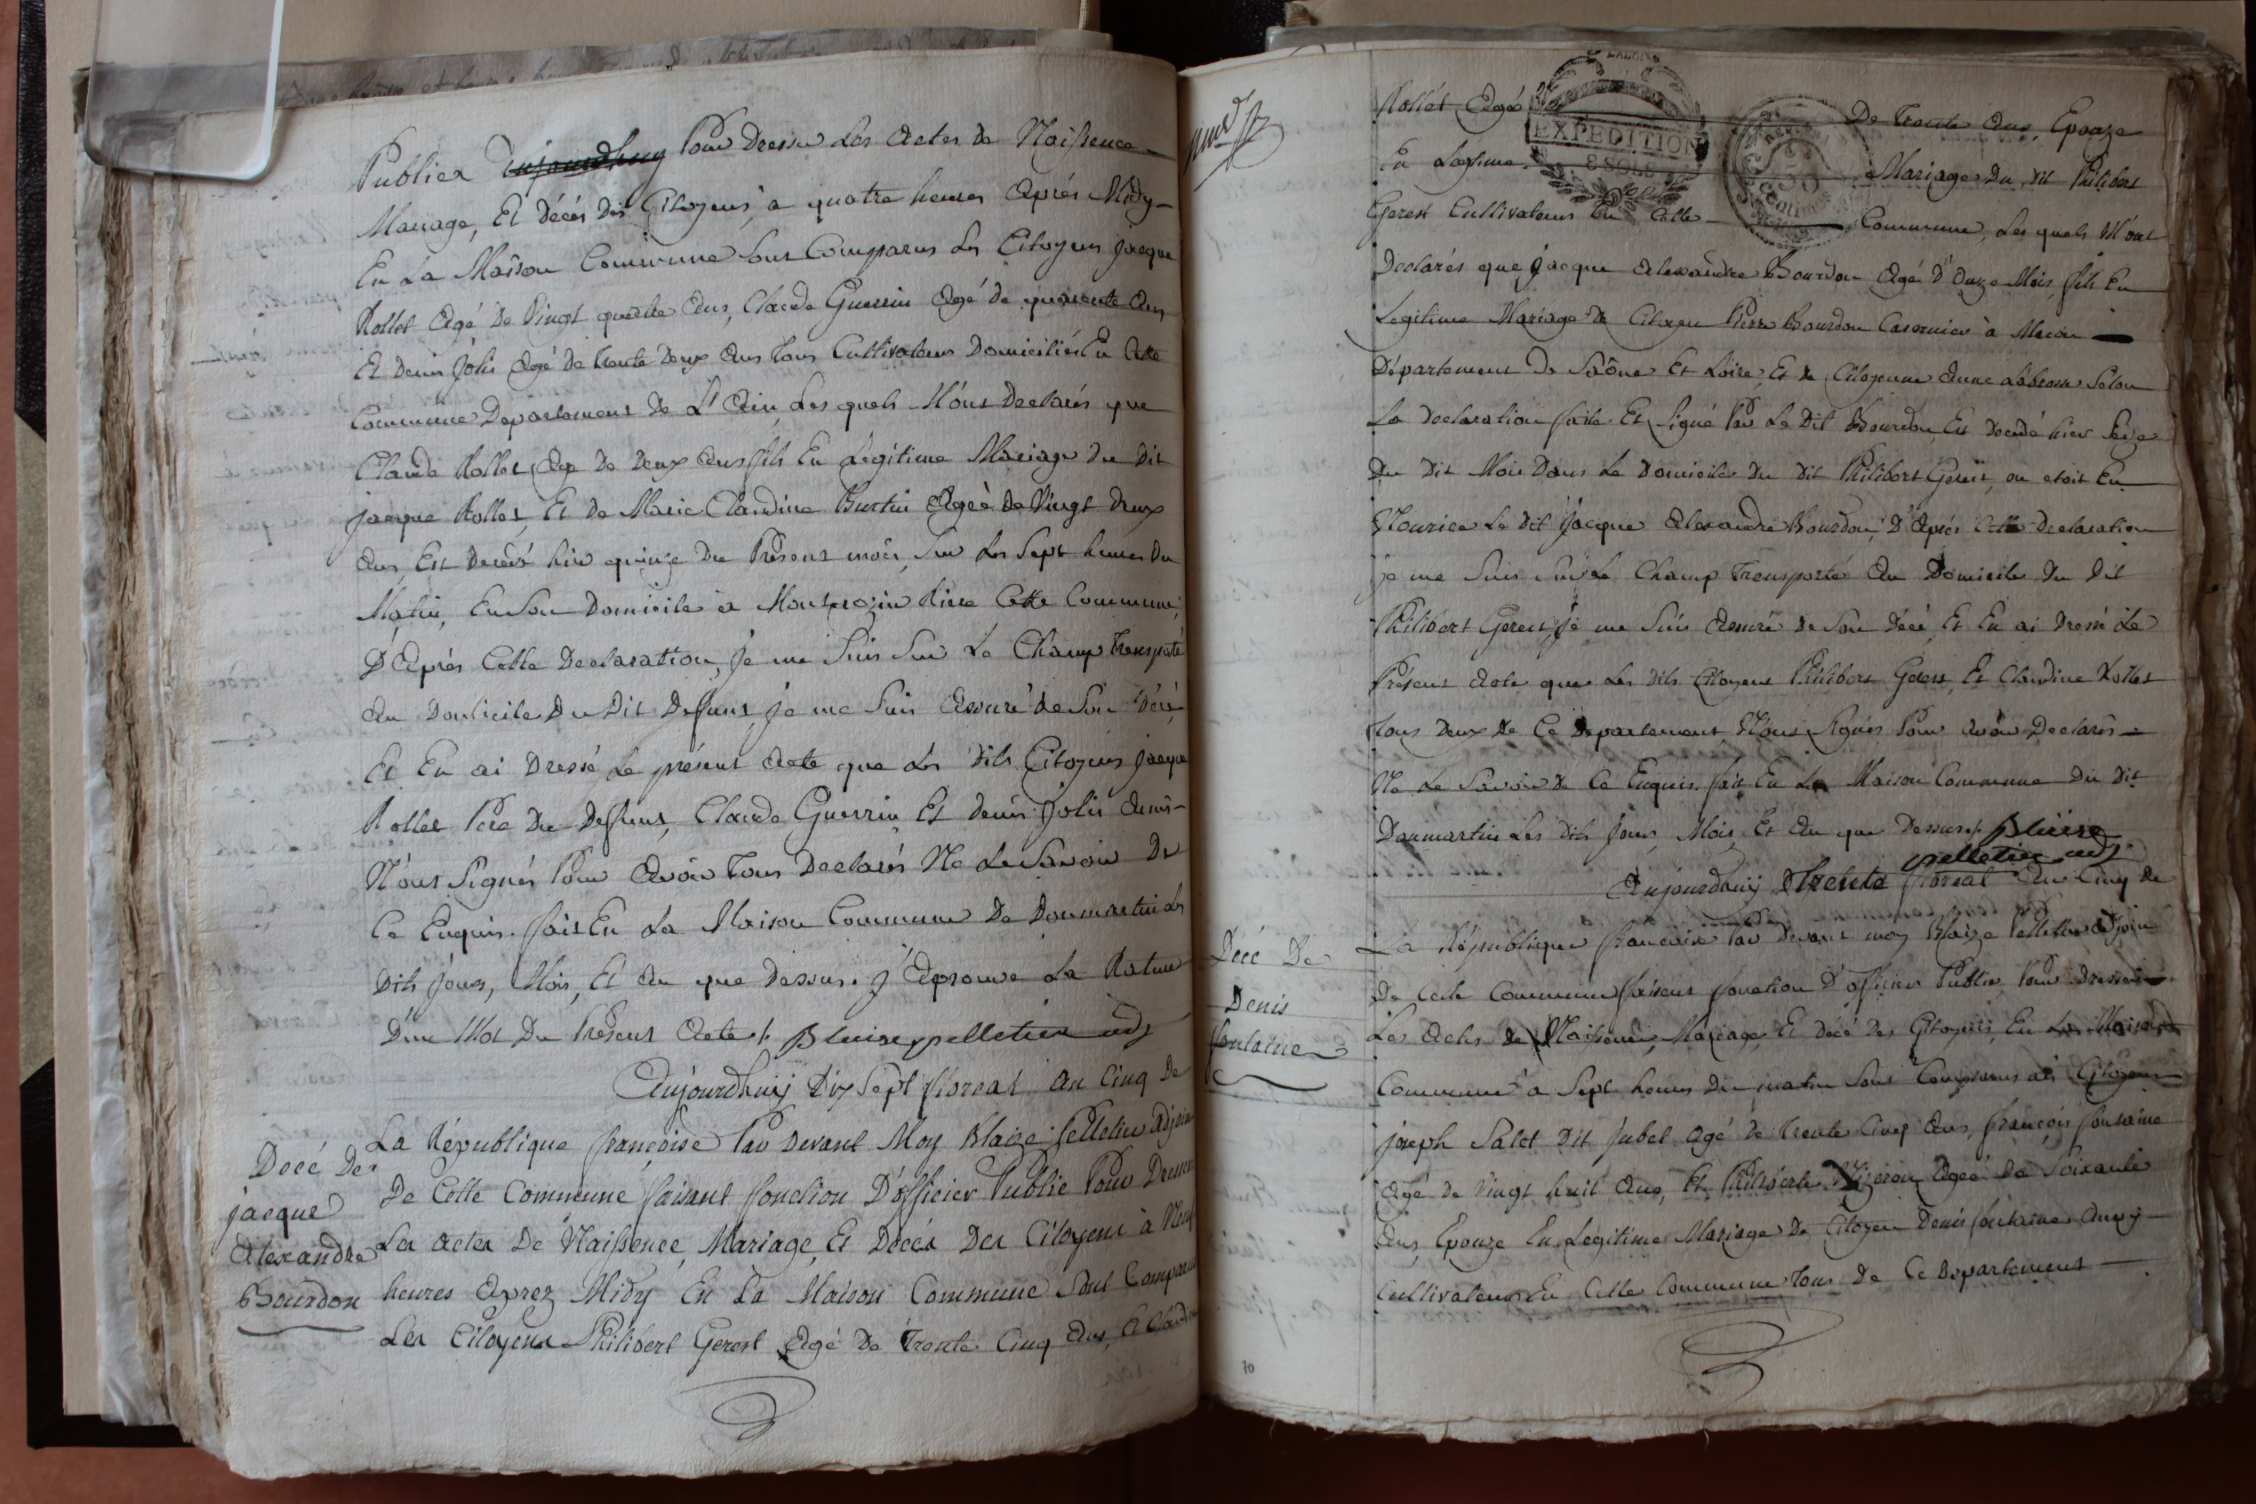 Publier aujourdhuy Pour Dresser Les Actes de Naissence
Mariage, Et décés des Citoyens, à quatre heures Aprés Midy
En La Maison Commune Sont Comparus Les Citoyens jacque
Rollet Agé De Vingt quatre Ans, Claude Guerrin Agé de quarente Ans
Et denis Jolis Agé de trente deux Ans tous Cultivateurs Domiciliés En Cette
Commune Departement De L'Ain Les quels M'ont Declarés que
Claude Rollet Age De deux Ans fils En Légitime Mariage Du Dit
jacque Rollet, Et De Marie Claudine Burtin Ageé De Vingt deux
Ans, Est Decédé hier quinze Du Présent mois, Sur Les Sept heures Du
Matin, En Son Domicile a Riere Cette Commune,
D'Aprés Cette Declaration, je me Suis Sur Le Champ Transporté
Au Domicile Du Dit Defunt je me Suis Assuré de Son Décé,
Et En ai Dressé Le présent Acte que Les Dits Citoyens jacque
Rollet Pere Du Deffunt, Claude Guerrin Et denis Jolis
N'ont Signés Pour Avoir tous Declarés Ne Le Savoir De
Ce Enquis. fait En La Maison Commune De Donmartin Les
Dits jours, Mois, Et An que Dessus. j'Aprouve La Rature
D'un Mot Du Présent Acte /. Blaise pelletier adj
Aujourdhuij Dix Sept floreal An Cinq De
La République françoise Par Devant Moy Blaize Pelletier Adjoin
De Cette Commune faisant fonction D'officier Public Pour Dresser
Les Actes De Naissence, Mariage, Et Décés Des Citoyens à Neuf
heures Aprez Midy En La Maison Commune Sont Comparus
Les Citoyens Philibert Gerest Agé De Trente Cinq Ans, Et Claudine
Décé De
jacque
Alexandre
Bourdon
Rollet Agé De Trente Ans, Epouze
En Legitime Mariage Du Dit Philibert
EXPEDITION
8 SOLS
Gerest Cultivateurs En Cette Commune, Les quels M'ont
Declarés que jacque Alexandre Bourdon Agé D'Onze Mois, fils En
Legitime Mariage De Citoyen Pierre Bourdon Casernier à Macon
Département De Saône Et Loire, Et De Citoyenne Anne Selon
La Declaration faite Et Signé Par Le Dit Bourdon, Est Decedé hier Seize
Du Dit Mois Dans Le Domicile Du Dit Philibert Gerest, ou etoit En
Nourice Le Dit Jacque Alexandre Bourdon, D'Aprés Cette Declaration
je me Suis Sur Le Champ Transporté Au Domicile Du Dit
Philibert Gerest, je me Suis Assuré de Son Décé, Et En ai Dressé Le
Présent Acte que Les Dits Citoyens Philibert Gerest, Et Claudine Rollet
tous deux de Ce Departement N'ont Signés Pour Avoir Declarés
Ne Le Savoir De Ce Enquis. fait En La Maison Commune Du Dit
Donmartin Les Dits Jours, Mois, Et An que Dessus /. Blaise
pelletier adj.
Aujourdhuij Trente floreal An Cinq De
La République francoise Par Devant moy Blaize Pelletier Adjoin
De Cette Commune faisant fonction D'officier Public Pour Dresser
Les Actes De Naissence, Mariage, Et Décé Des Citoyens, En La Maison
Commune a Sept heures Du matin Sont Comparus Les Citoyens
joseph Salet Dit Jubel Agé De trente Cinq Ans, françois fontaine
Agé De Vingt huit Ans, Et Philiberte Ageé De Soixante
Ans, Epouze En Légitime Mariage De Citoyen Denis fontaine Aussy
Cultivateurs En Cette Commune Tous De Ce Departement
Décé De
Denis
fontaine